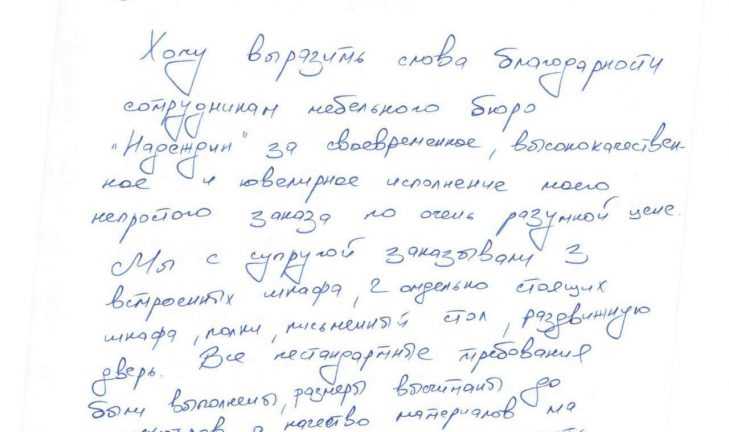 Хочу выразить слова благодарности
сотрудникам мебельного бюро
"Надеждин" за своевременное, высококачествен-
ное и ювелирное исполнение моего
непростого заказа по очень разумной цене.
Мы с супругой заказывали 3
встроенных шкафа, 2 отдельно стоящих
шкафа, полки, письменный стол, раздвижную
дверь. Все нестандартные требования
были выполнены, размеры высчитаны до
а качество материалов на